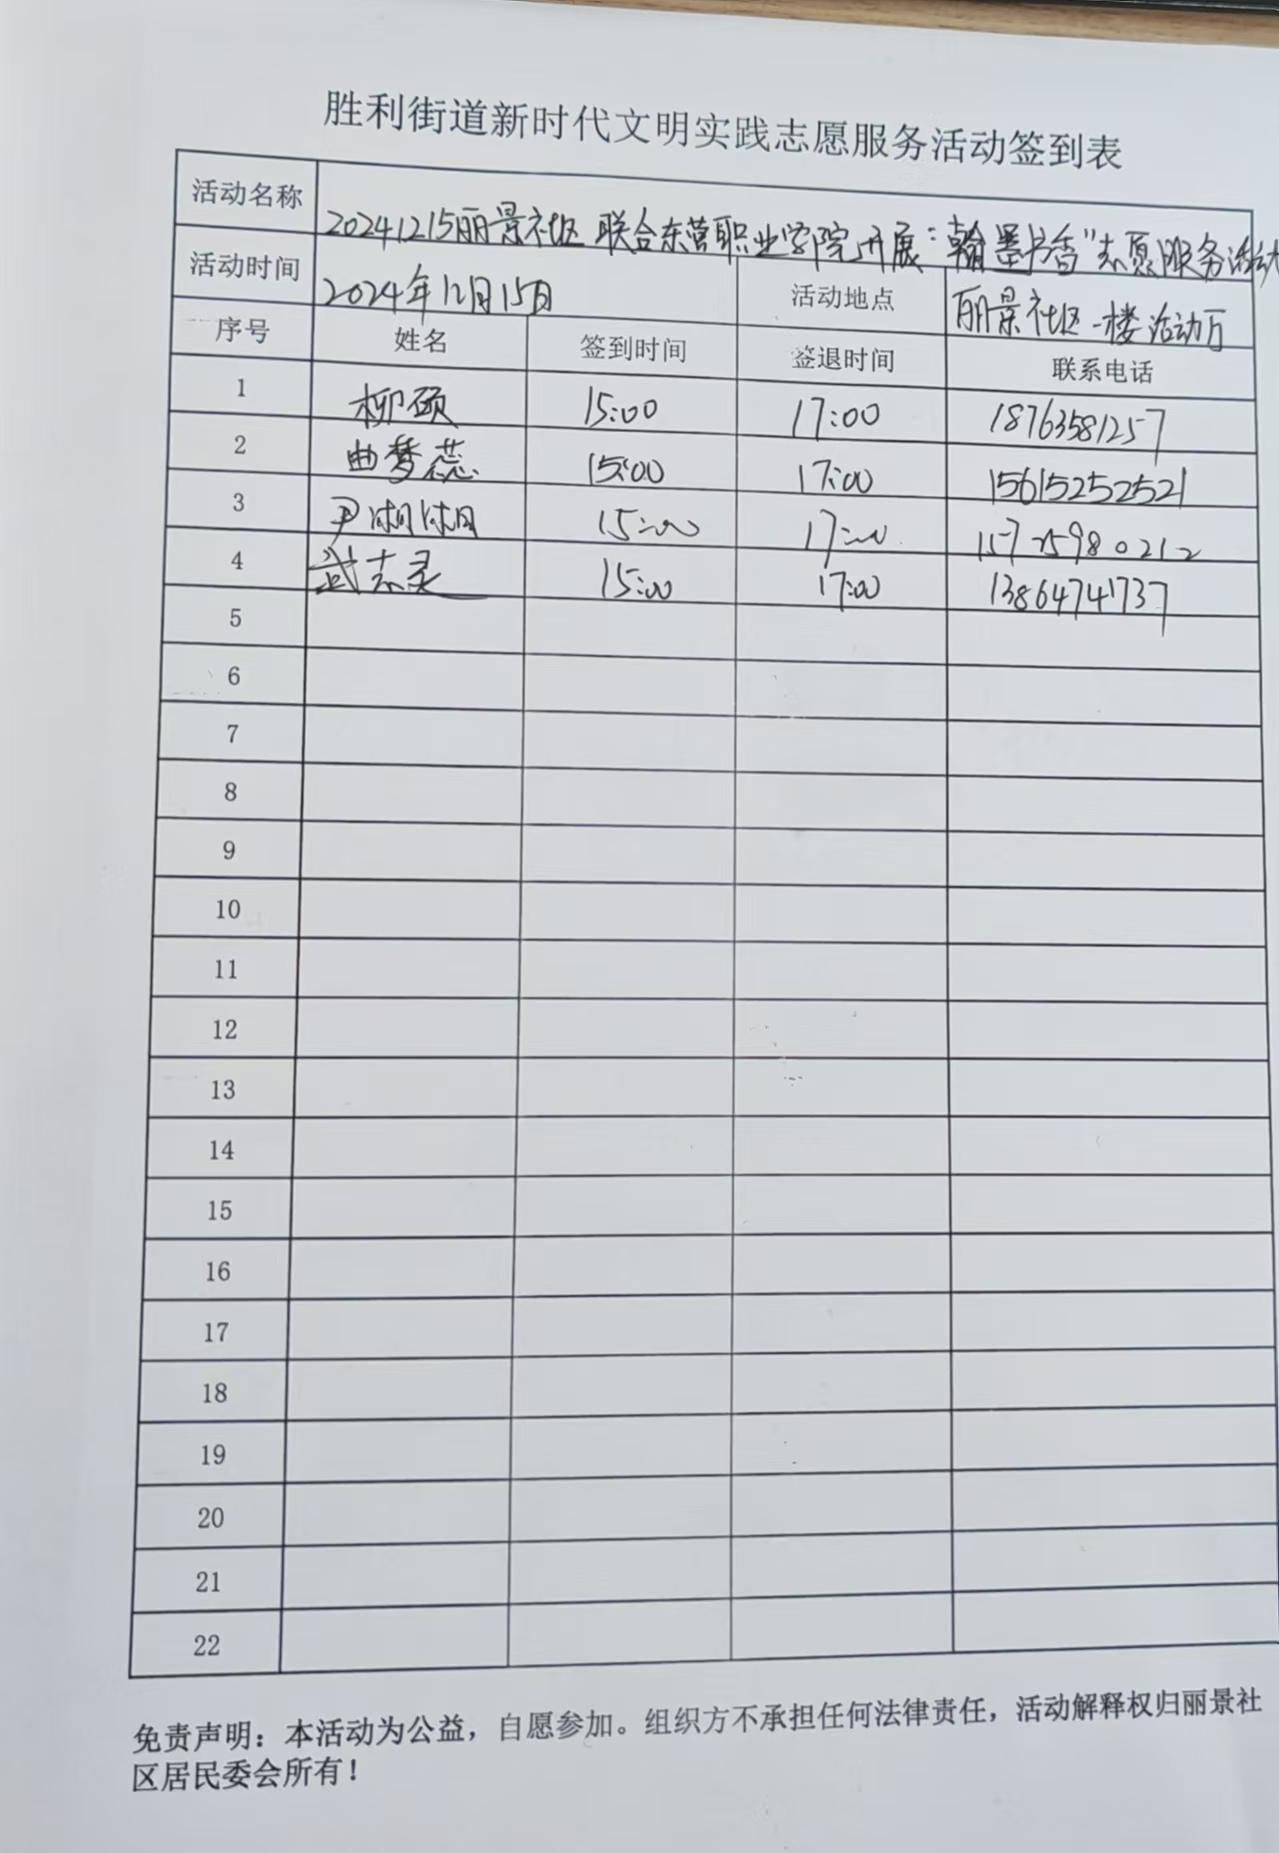 胜利街道新时代文明实践志愿服务活动签到表
活动名称 20241215丽景社区联合东营职业学院开展："翰墨书香"志愿服务活动
活动时间 2024年12月15日 活动地点 丽景社区一楼活动厅
序号 姓名 签到时间 签退时间 联系电话
1 柳硕 15:00 17:00 18763581257
2 曲梦蕊 15:00 17:00 15615252521
3 尹湘湘 15:00 17:00 15725980212
4 武志灵 15:00 17:00 13864741737
5
6
7
8
9
10
11
12
13
14
15
16
17
18
19
20
21
22
免责声明：本活动为公益，自愿参加。组织方不承担任何法律责任，活动解释权归丽景社
区居民委会所有！